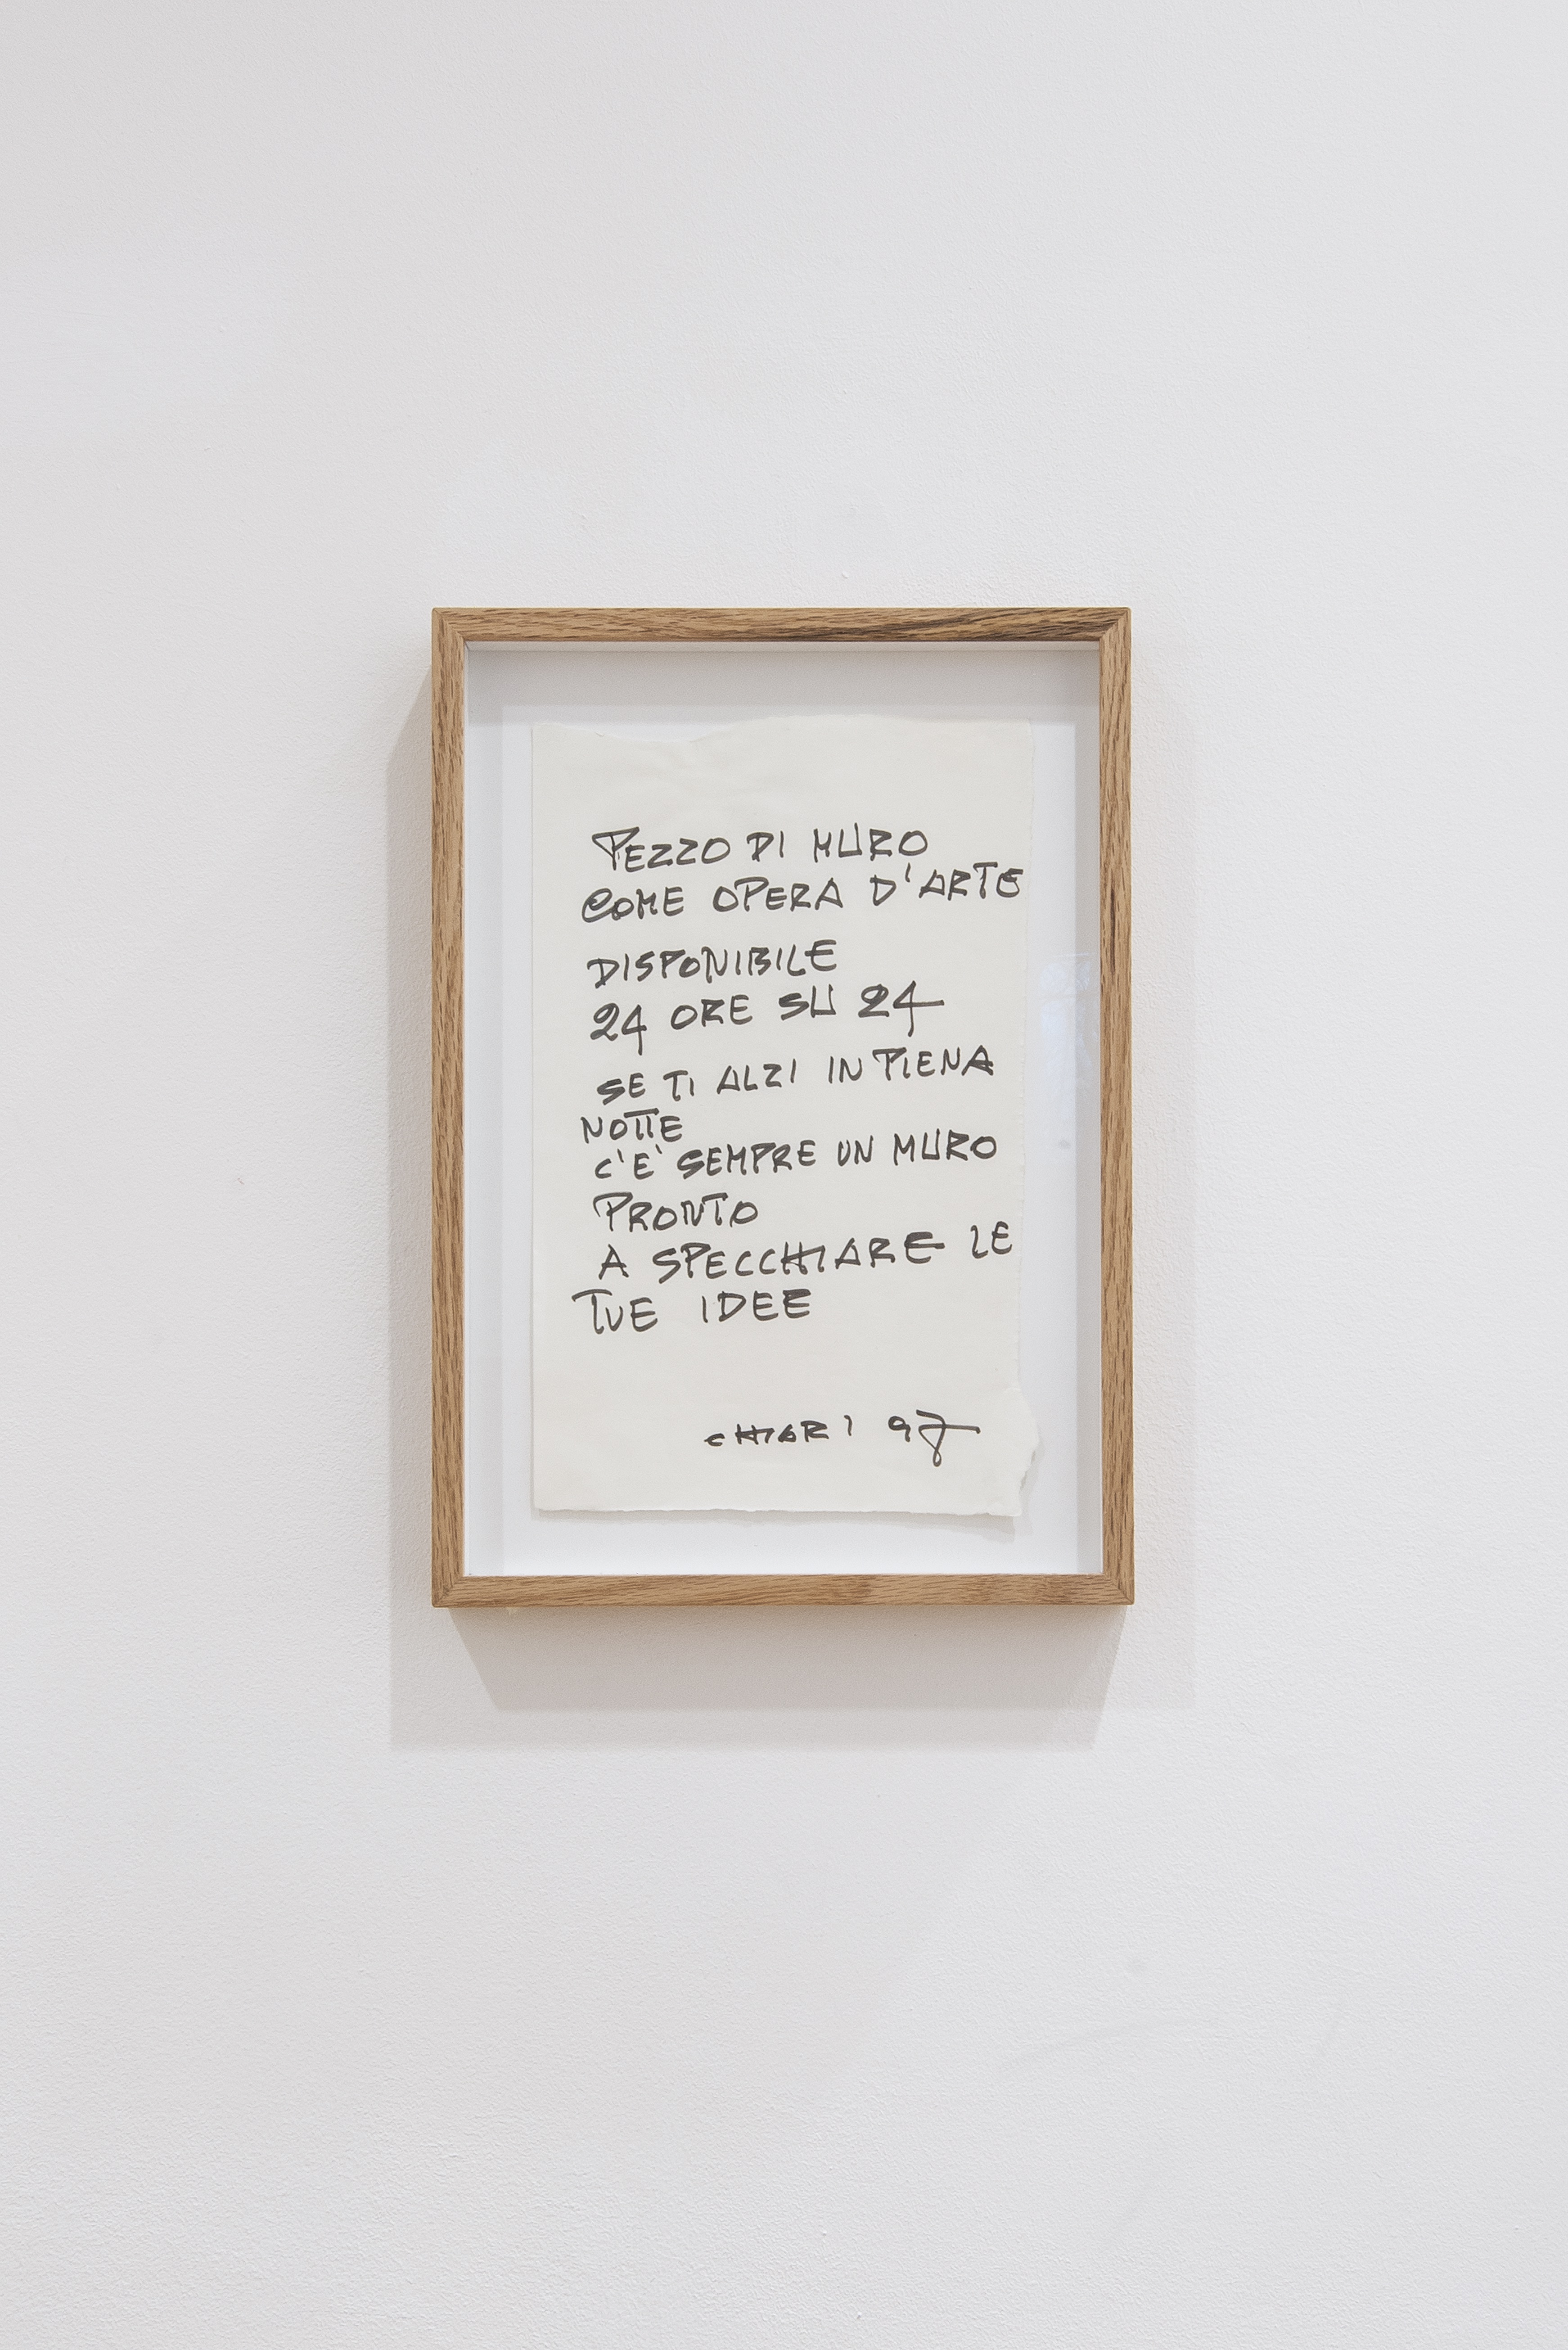 PEZZO DI MURO
COME OPERA D'ARTE
DISPONIBILE
24 ORE SU 24
SE TI ALZI IN PIENA
NOTTE
C'E' SEMPRE UN MURO
PRONTO
A SPECCHIARE LE
TUE IDEE
CHIARI 97